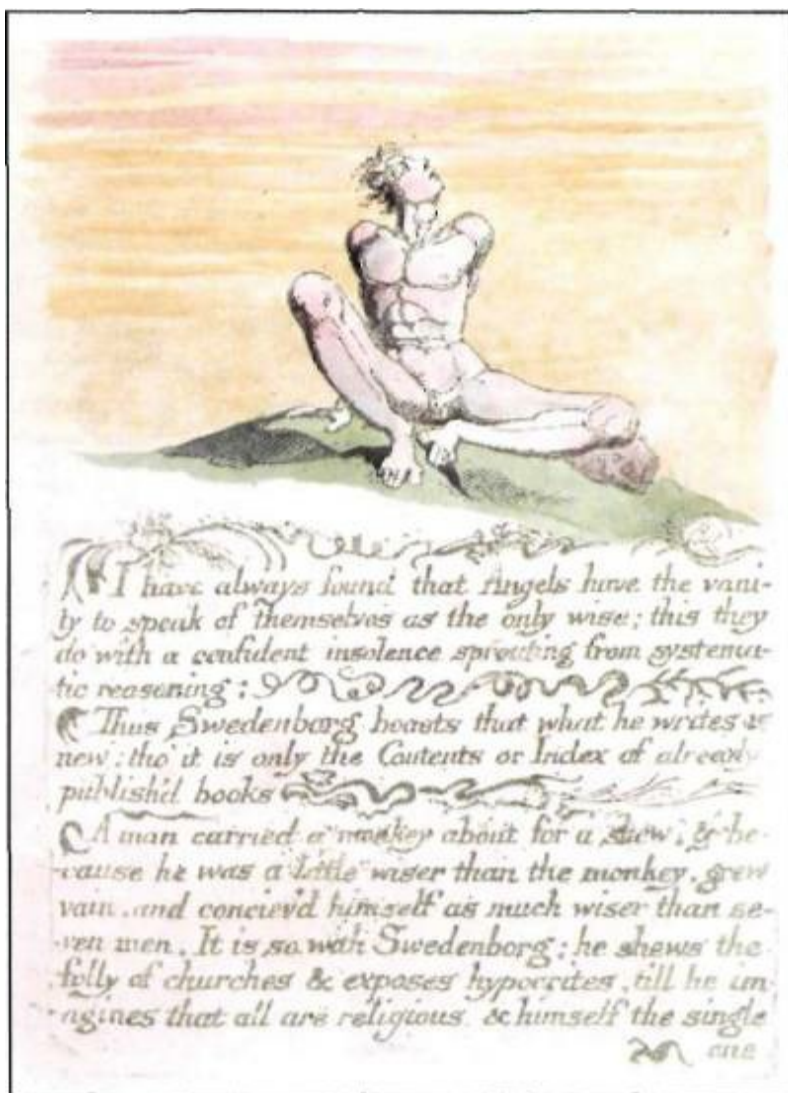 I have always found that Angels have the vani-
ty to speak of themselves as the only wise; this they
do with a confident insolence sprouting from systema-
tic reasoning:
Thus Swedenborg boasts that what he writes is
new; tho' it is only the Contents or Index of already
publish'd books
A man carried a monkey about for a shew, & be-
cause he was a little wiser than the monkey, grew
vain, and conciev'd himself as much wiser than se-
ven men. It is so with Swedenborg; he shews the
folly of churches & exposes hypocrites, till he im-
agines that all are religious. & himself the single
one